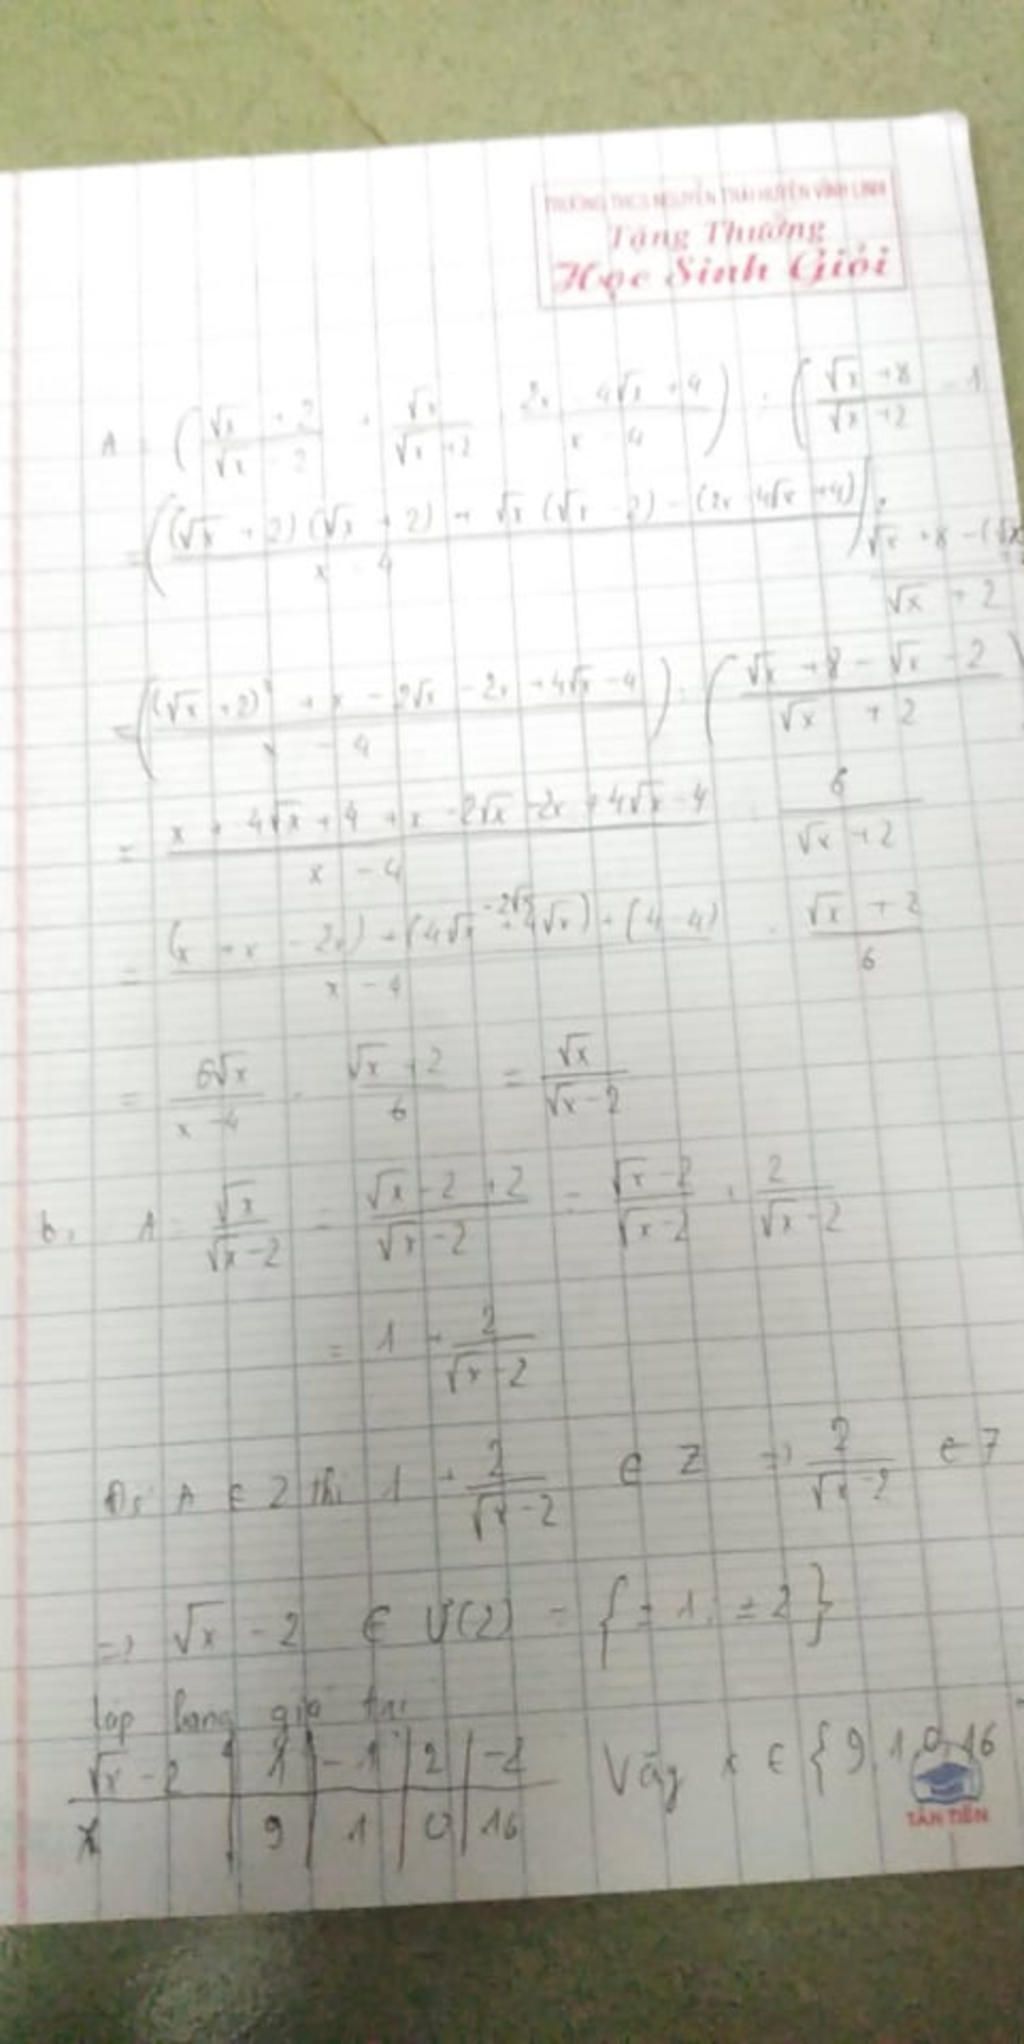 TRƯỜNG THCS NGUYỄN TRÃI HUYỆN VĨNH LINH
Tặng Thưởng
Học Sinh Giỏi
A = (√x + 2 / √x - 2 + √x / √x + 2 - 2x - 4√x + 4 / x - 4) : (√x + 8 / √x + 2 - 1
= ((√x + 2)(√x + 2) + √x(√x - 2) - (2x - 4√x + 4) / x - 4) : √x + 8 - (√x / √x + 2
= ((√x + 2)² + x - 2√x - 2x + 4√x - 4 / x - 4) : (√x + 8 - √x - 2 / √x + 2)
= x + 4√x + 4 + x - 2√x - 2x + 4√x - 4 / x - 4 : 6 / √x + 2
= (x + x - 2x) + (4√x - 2√x + 4√x) + (4 - 4) / x - 4 . √x + 2 / 6
= 6√x / x - 4 . √x + 2 / 6 = √x / √x - 2
b, A = √x / √x - 2 = √x - 2 + 2 / √x - 2 = √x - 2 / √x - 2 + 2 / √x - 2
= 1 + 2 / √x - 2
Để A ∈ Z thì 1 + 2 / √x - 2 ∈ Z => 2 / √x - 2 ∈ Z
=> √x - 2 ∈ Ư(2) = {±1; ±2}
lập bảng giá trị
√x - 2 | 1 | -1 | 2 | -2
x | 9 | 1 | 0 | 16
Vậy x ∈ {9, 1, 0, 16
TÂN TIẾN